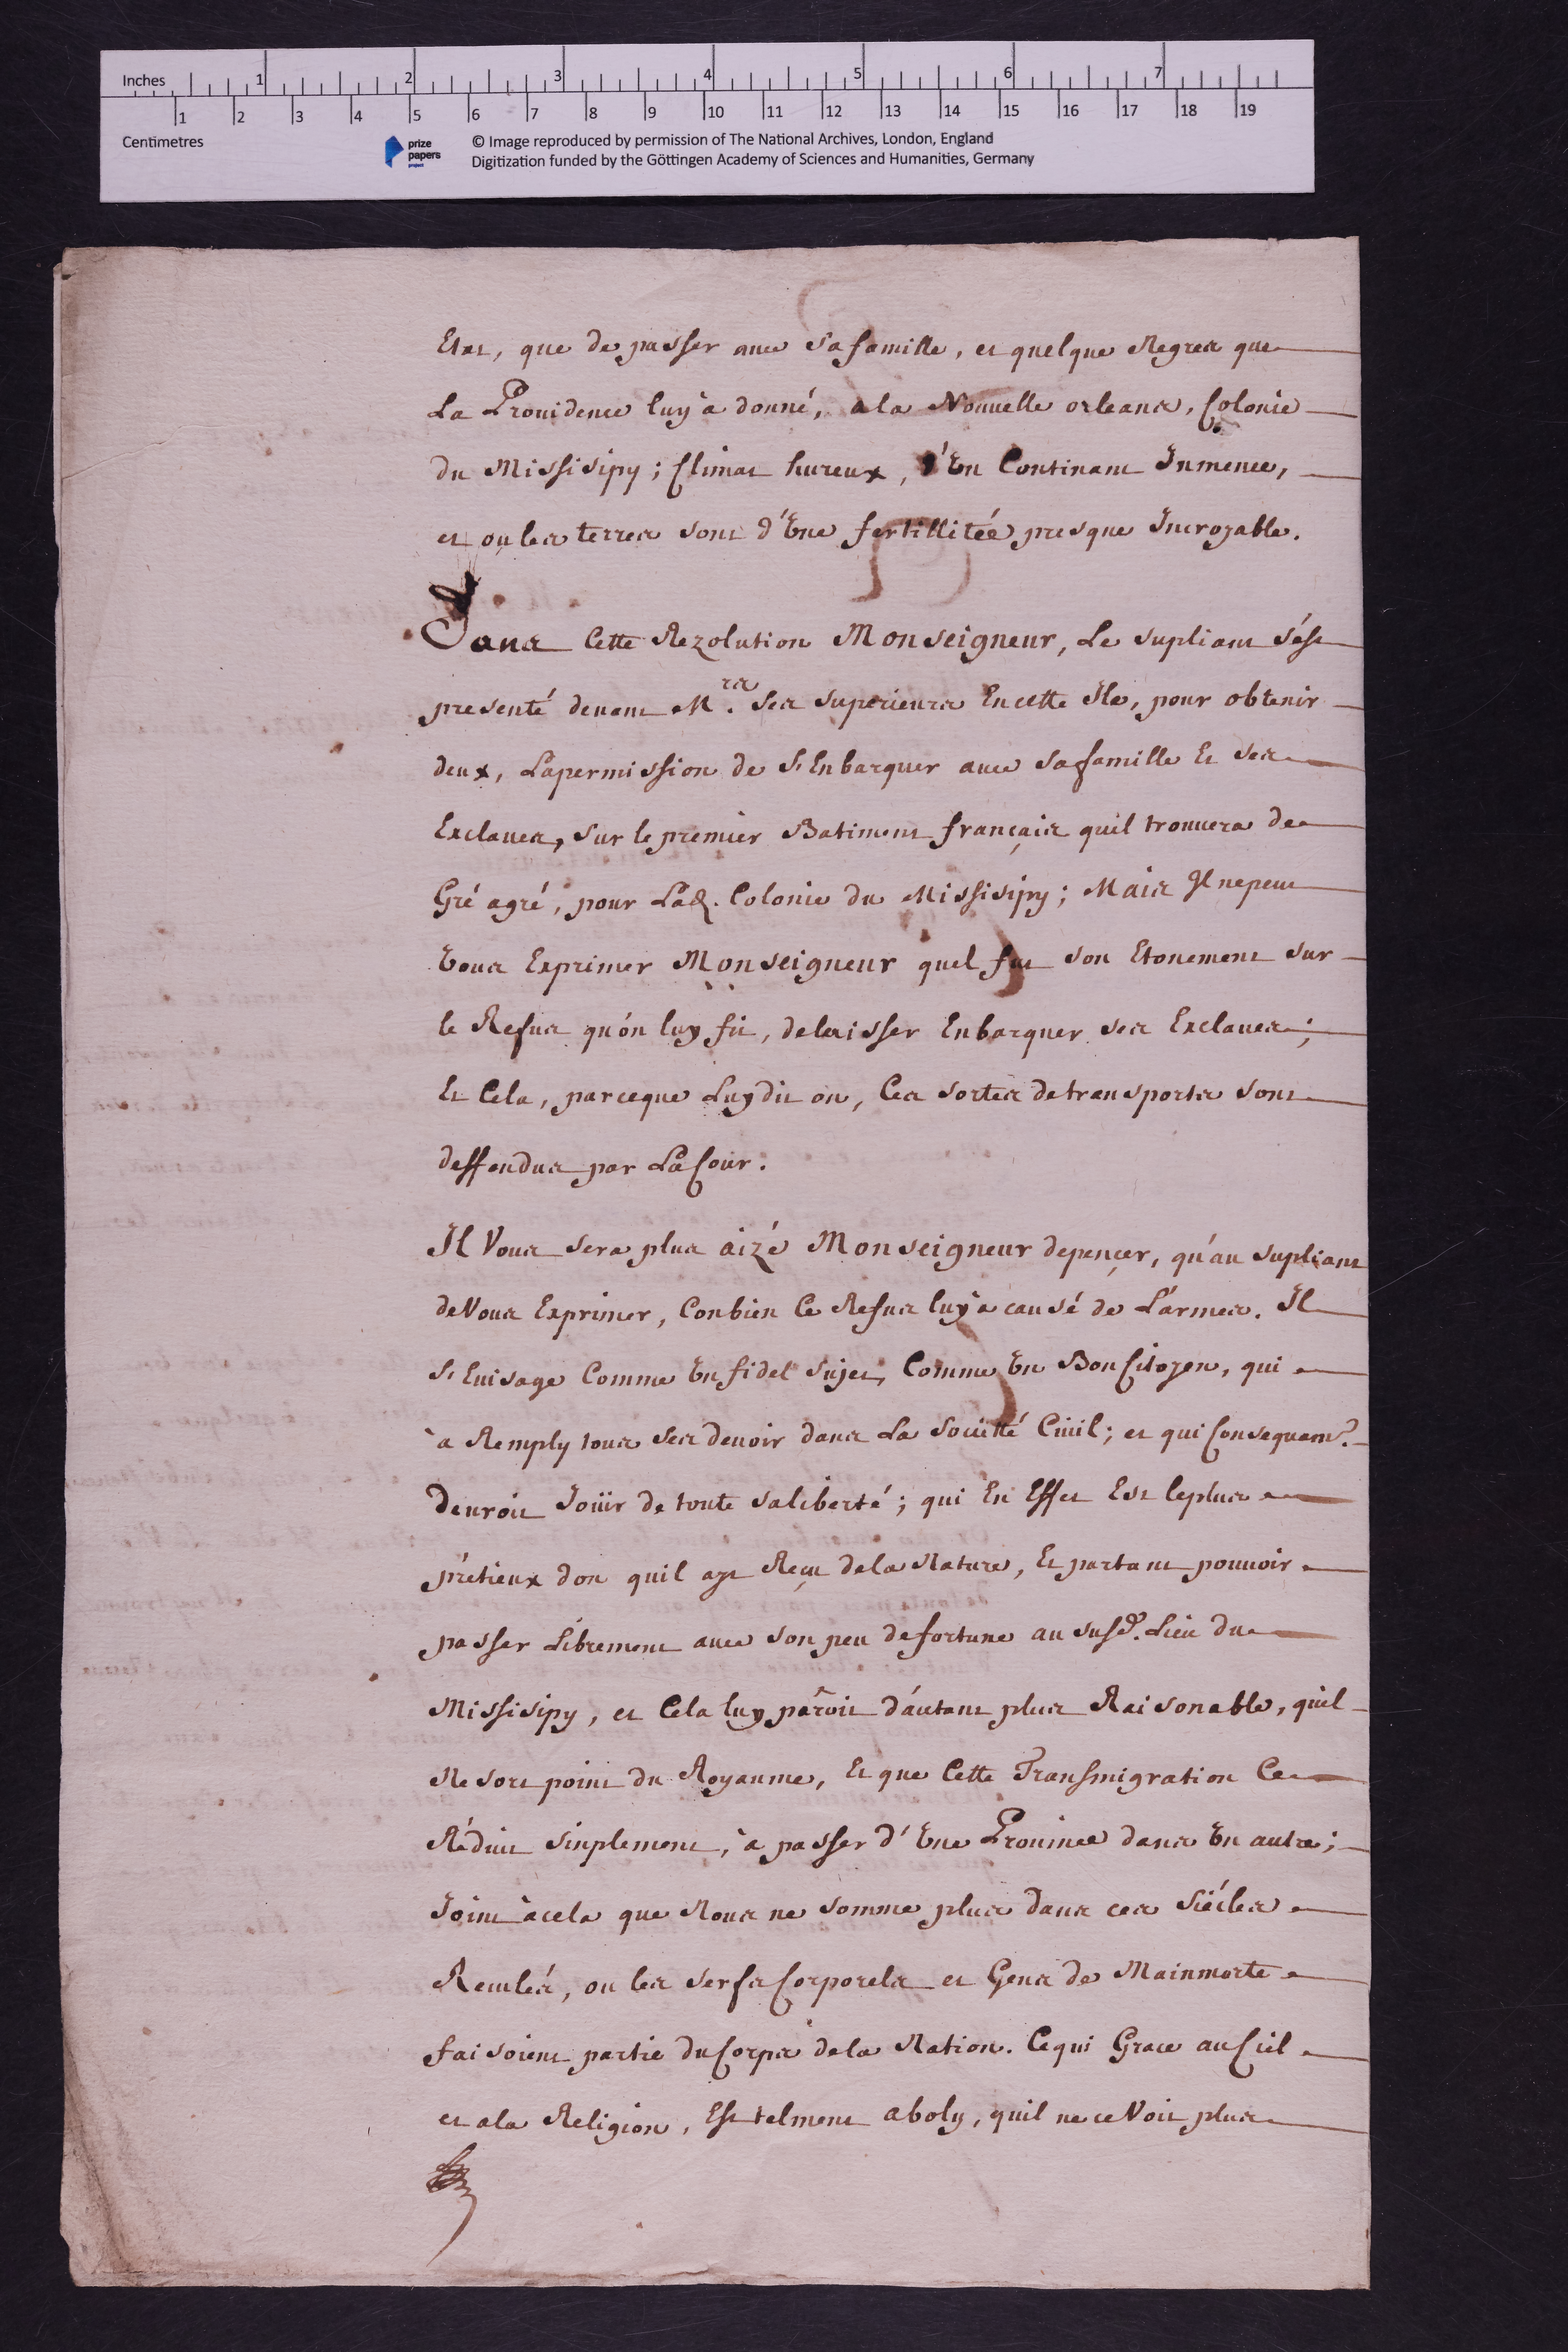 Inches 1 2 3 4 5 6 7
1 2 3 4 5 6 7 8 9 10 11 12 13 14 15 16 17 18 19
Centimetres
prize
papers
project
© Image reproduced by permission of The National Archives, London, England
Digitization funded by the Göttingen Academy of Sciences and Humanities, Germany
Etat, que de passer avec sa famille, et quelque Negres que
La Providence luy à donné, a la Nouvelle orleans, Colonie
du Missisipy; Climat hureux, d'Un Continant Inmence,
et ou les terres sont d'Une fertillitée presque Incroyable.
Dans Cette Rezolution Monseigneur, Le supliant s'ést
presenté devant M.rs ses superieurs En cette Ile, pour obtenir
deux, La permission de s'Enbarquer avec sa famille Et ses
Exclaves, sur le premier Batiment français quil trouvera de
Gré agré, pour Lad. Colonie du Missisipy; Mais Il ne peut
Vous Exprimer Monseigneur quel fut son Etonement sur
le Refus qu'ón luy fit, de laisser Enbarquer ses Exclaves;
Et Cela, parce que Luy dit on, Ces sortes de transports sont
deffendus par La Cour.
Il Vous sera plus aizé Monseigneur de pençer, qu'au supliant
de Vous Exprimer, Conbien Ce Refus luy à causé de L'armes. Il
s'Envisage Comme Un fidel sujet, Comme Un Bon Citoyen, qui
à Remply tous ses devoir dans La Societté Civil; et qui Consequam.t
devroit Joüir de toute sa liberté; qui En Effet Est le plus
prétieux don quil ayt Reçu de la Nature, Et partant pouvoir
passer Librement avec son peu de fortune au susd. Lieu du
Missisipy, et Cela luy parôit d'áutant plus Raisonable, quil
Ne sort point du Royaume, Et que Cette Transmigration Ce
Réduit sinplement, à passer d'Une Province dans Un autre;
Joint à cela que Nous ne somme plus dans ces siécles
Reculés, ou les serfs Corporels et Gens de Mainmorte
faisoient partie du Corps de la Nation. Ce qui Grace au Ciel
et a la Religion, Est telment aboly, quil ne ce Voit plus